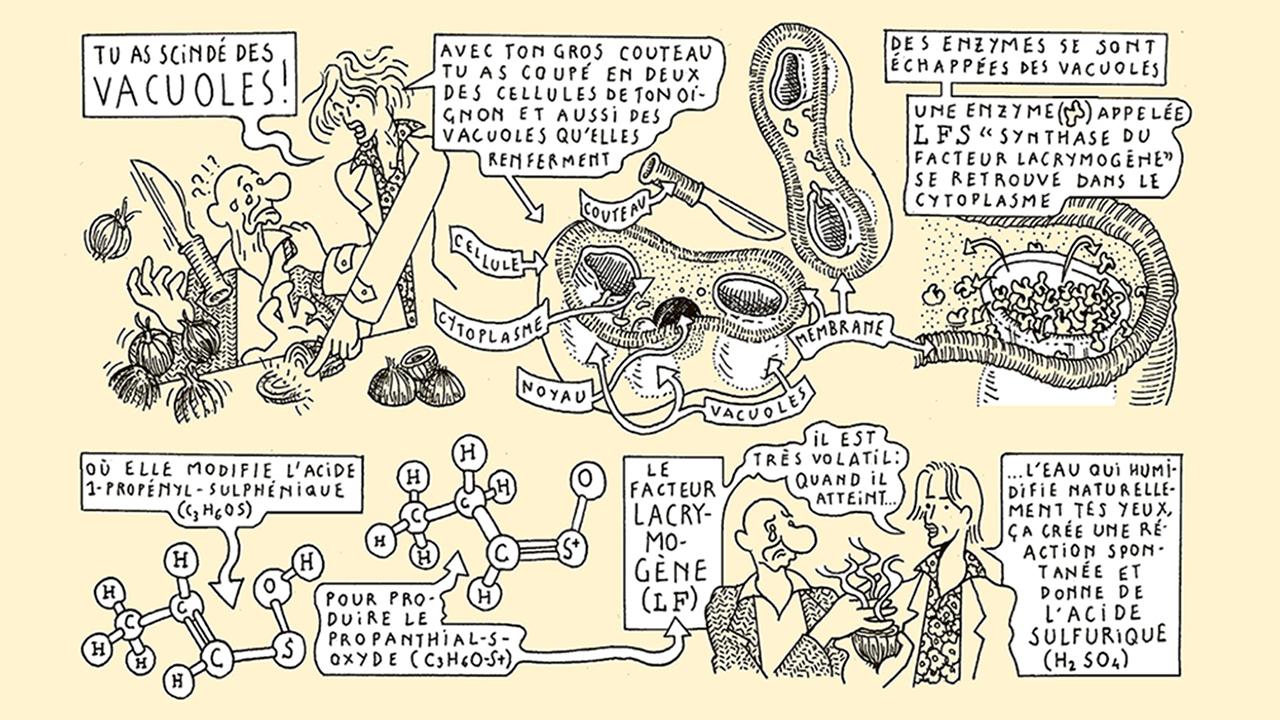 TU AS SCINDÉ DES
VACUOLES!
AVEC TON GROS COUTEAU
TU AS COUPÉ EN DEUX
DES CELLULES DE TON OI-
GNON ET AUSSI DES
VACUOLES QU'ELLES
RENFERMENT
COUTEAU
CELLULE
CYTOPLASME
NOYAU
VACUOLES
MEMBRANE
DES ENZYMES SE SONT
ÉCHAPPÉES DES VACUOLES
UNE ENZYME ( ) APPELÉE
LFS "SYNTHASE DU
FACTEUR LACRYMOGÈNE"
SE RETROUVE DANS LE
CYTOPLASME
OÙ ELLE MODIFIE L'ACIDE
1-PROPÉNYL-SULPHÉNIQUE
(C3H6OS)
H
H
H
H
H
H
C
C
C
O
S
H
H
H
H
H
H
C
C
C
O
S+
POUR PRO-
DUIRE LE
PROPANTHIAL-S-
OXYDE (C3H6O-S+)
LE
FACTEUR
LACRY-
MO-
GÈNE
(LF)
IL EST
TRÈS VOLATIL:
QUAND IL
ATTEINT...
...L'EAU QUI HUMI-
DIFIE NATURELLE-
MENT TES YEUX,
ÇA CRÉE UNE RÉ-
ACTION SPON-
TANÉE ET
DONNE DE
L'ACIDE
SULFURIQUE
(H2 SO4)